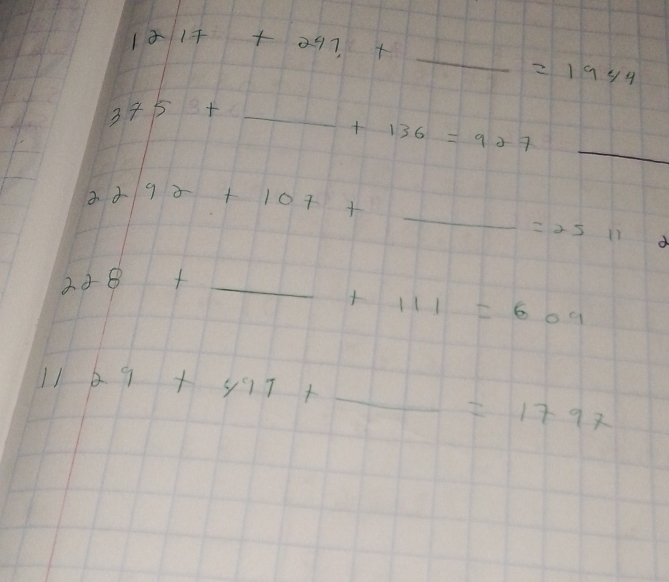 1217 + 297 + ____ = 1944
375 + ____ + 136 = 927
2292 + 107 + ____ = 2511
228 + ____ + 111 = 609
1129 + 497 + ____ = 1797